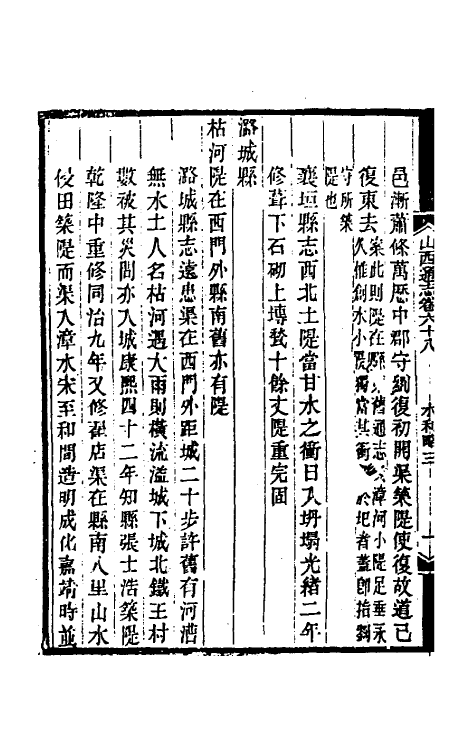 山西通志卷六十八 水利略三 一
邑漸蕭條萬歷中郡守劉復初開渠築隄使復故道已
復東去案此則隄在縣 舊通志 漳河小隄足垂永
久惟創水小隄獨當其衝 於圯者蓋卽指劉
守所築
隄也
襄垣縣志西北土隄當甘水之衝日久坍塌光緒二年
修葺下石砌上塼甃十餘丈隄重完固
潞城縣
枯河隄在西門外縣南舊亦有隄
潞城縣志遠患渠在西門外距城二十步許舊有河漕
無水土人名枯河遇大雨則橫流溢城下城北鐵王村
數被其災間亦入城康熙四十二年知縣張士浩築隄
乾隆中重修同治九年又修翟店渠在縣南八里山水
侵田築隄而渠入漳水宋至和間造明成化嘉靖時並